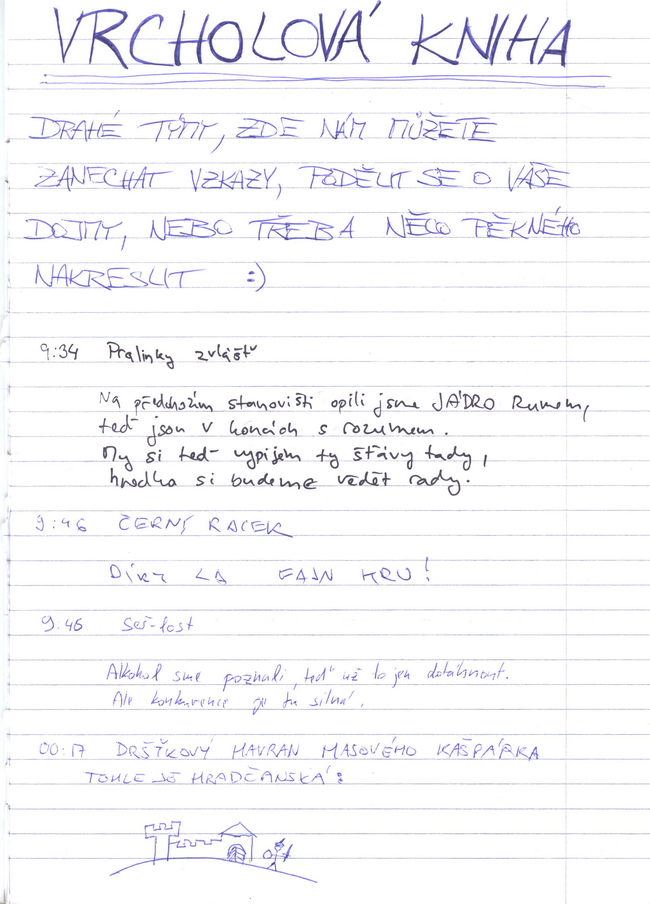 VRCHOLOVÁ KNIHA
DRAHÉ TÝMY, ZDE NÁM MŮŽETE
ZANECHAT VZKAZY, PODĚLIT SE O VAŠE
DOJMY, NEBO TŘEBA NĚCO PĚKNÉHO
NAKRESLIT :)
9:34 Pralinky zvlášť
Na předchozím stanovišti opili jsme JÁDRO Rumem,
teď jsou v koncích s rozumem.
My si teď vypijem ty šťávy tady,
hnedka si budeme vědět rady.
9:46 ČERNÝ RACEK
DÍKY ZA FAJN HRU!
9:46 Seš-lost
Alkohol sme poznali, teď už to jen dotáhnout.
Ale konkurence je tu silná.
00:17 DRŠŤKOVÝ HAVRAN MASOVÉHO KAŠPÁRKA
TOHLE JE HRADČANSKÁ: